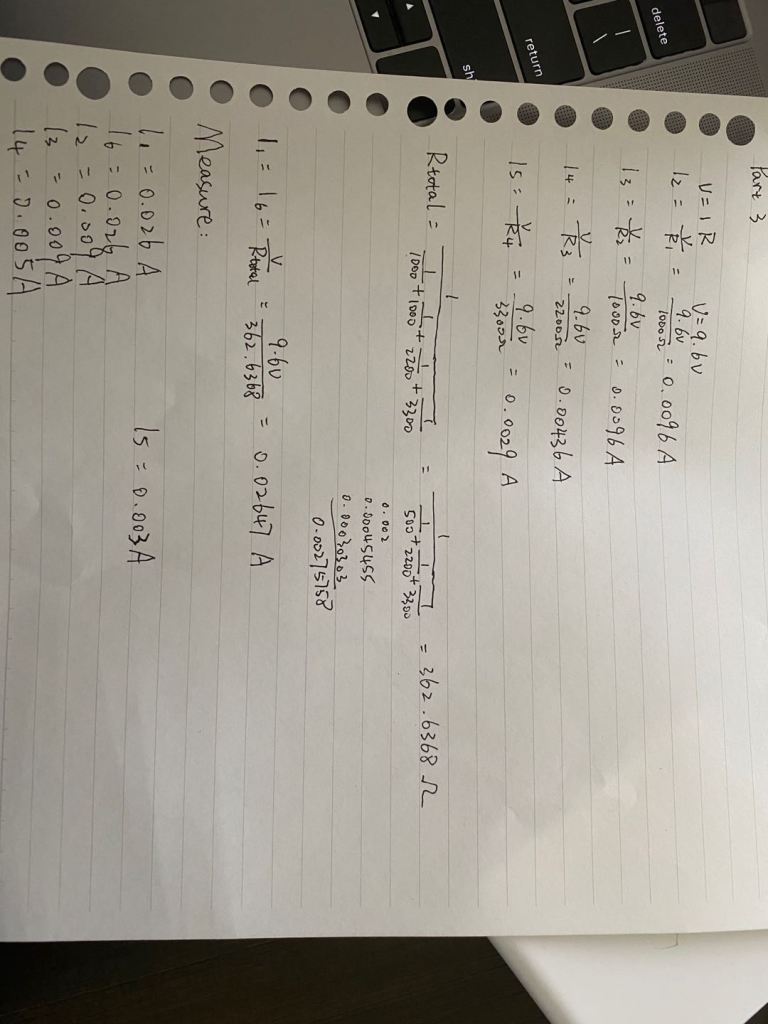 Part 3
V=IR V=9.6V
I2 = V/R1 = 9.6V/1000Ω = 0.0096 A
I3 = V/R2 = 9.6V/1000Ω = 0.0096 A
I4 = V/R3 = 9.6V/2200Ω = 0.00436 A
I5 = V/R4 = 9.6V/3300Ω = 0.0029 A
Rtotal = 1/(1/1000 + 1/1000 + 1/2200 + 1/3300) = 1/(1/500 + 1/2200 + 1/3300) = 362.6368 Ω
0.002
0.00045455
0.00030303
0.00275758
I1 = I6 = V/Rtotal = 9.6V/362.6368 = 0.02647 A
Measure:
I1 = 0.026 A I5 = 0.003 A
I6 = 0.026 A
I2 = 0.009 A
I3 = 0.009 A
I4 = 0.005 A
delete
| \
return
sh